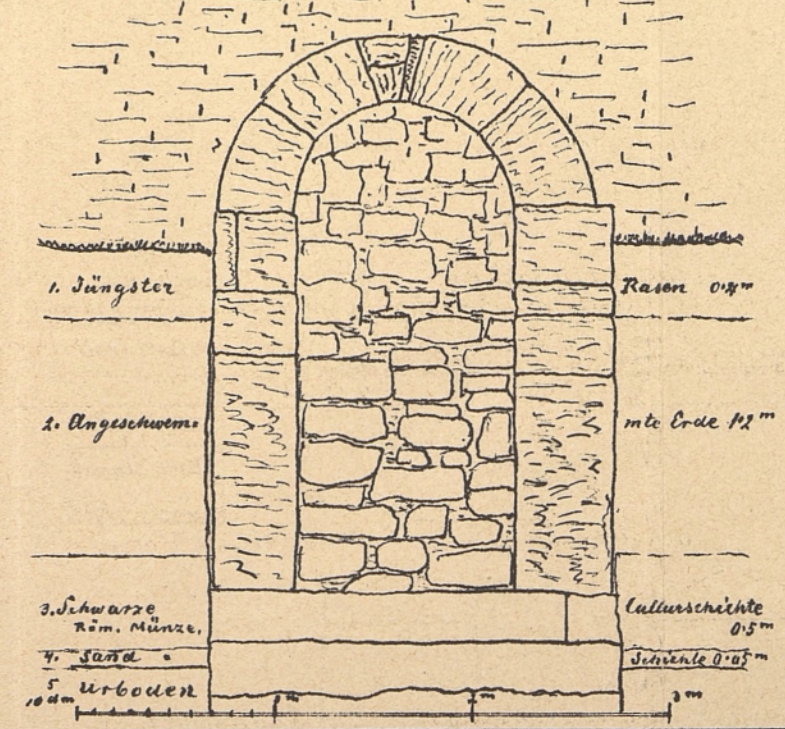 1. Jüngster Rasen 0·4m
2. Angeschwem- mte Erde 1·2m
3. Schwarze Culturschichte
Röm. Münze, 0·5m
4. Sand - Schichte 0·05m
5 Urboden
10 dm 1m 2m 3m